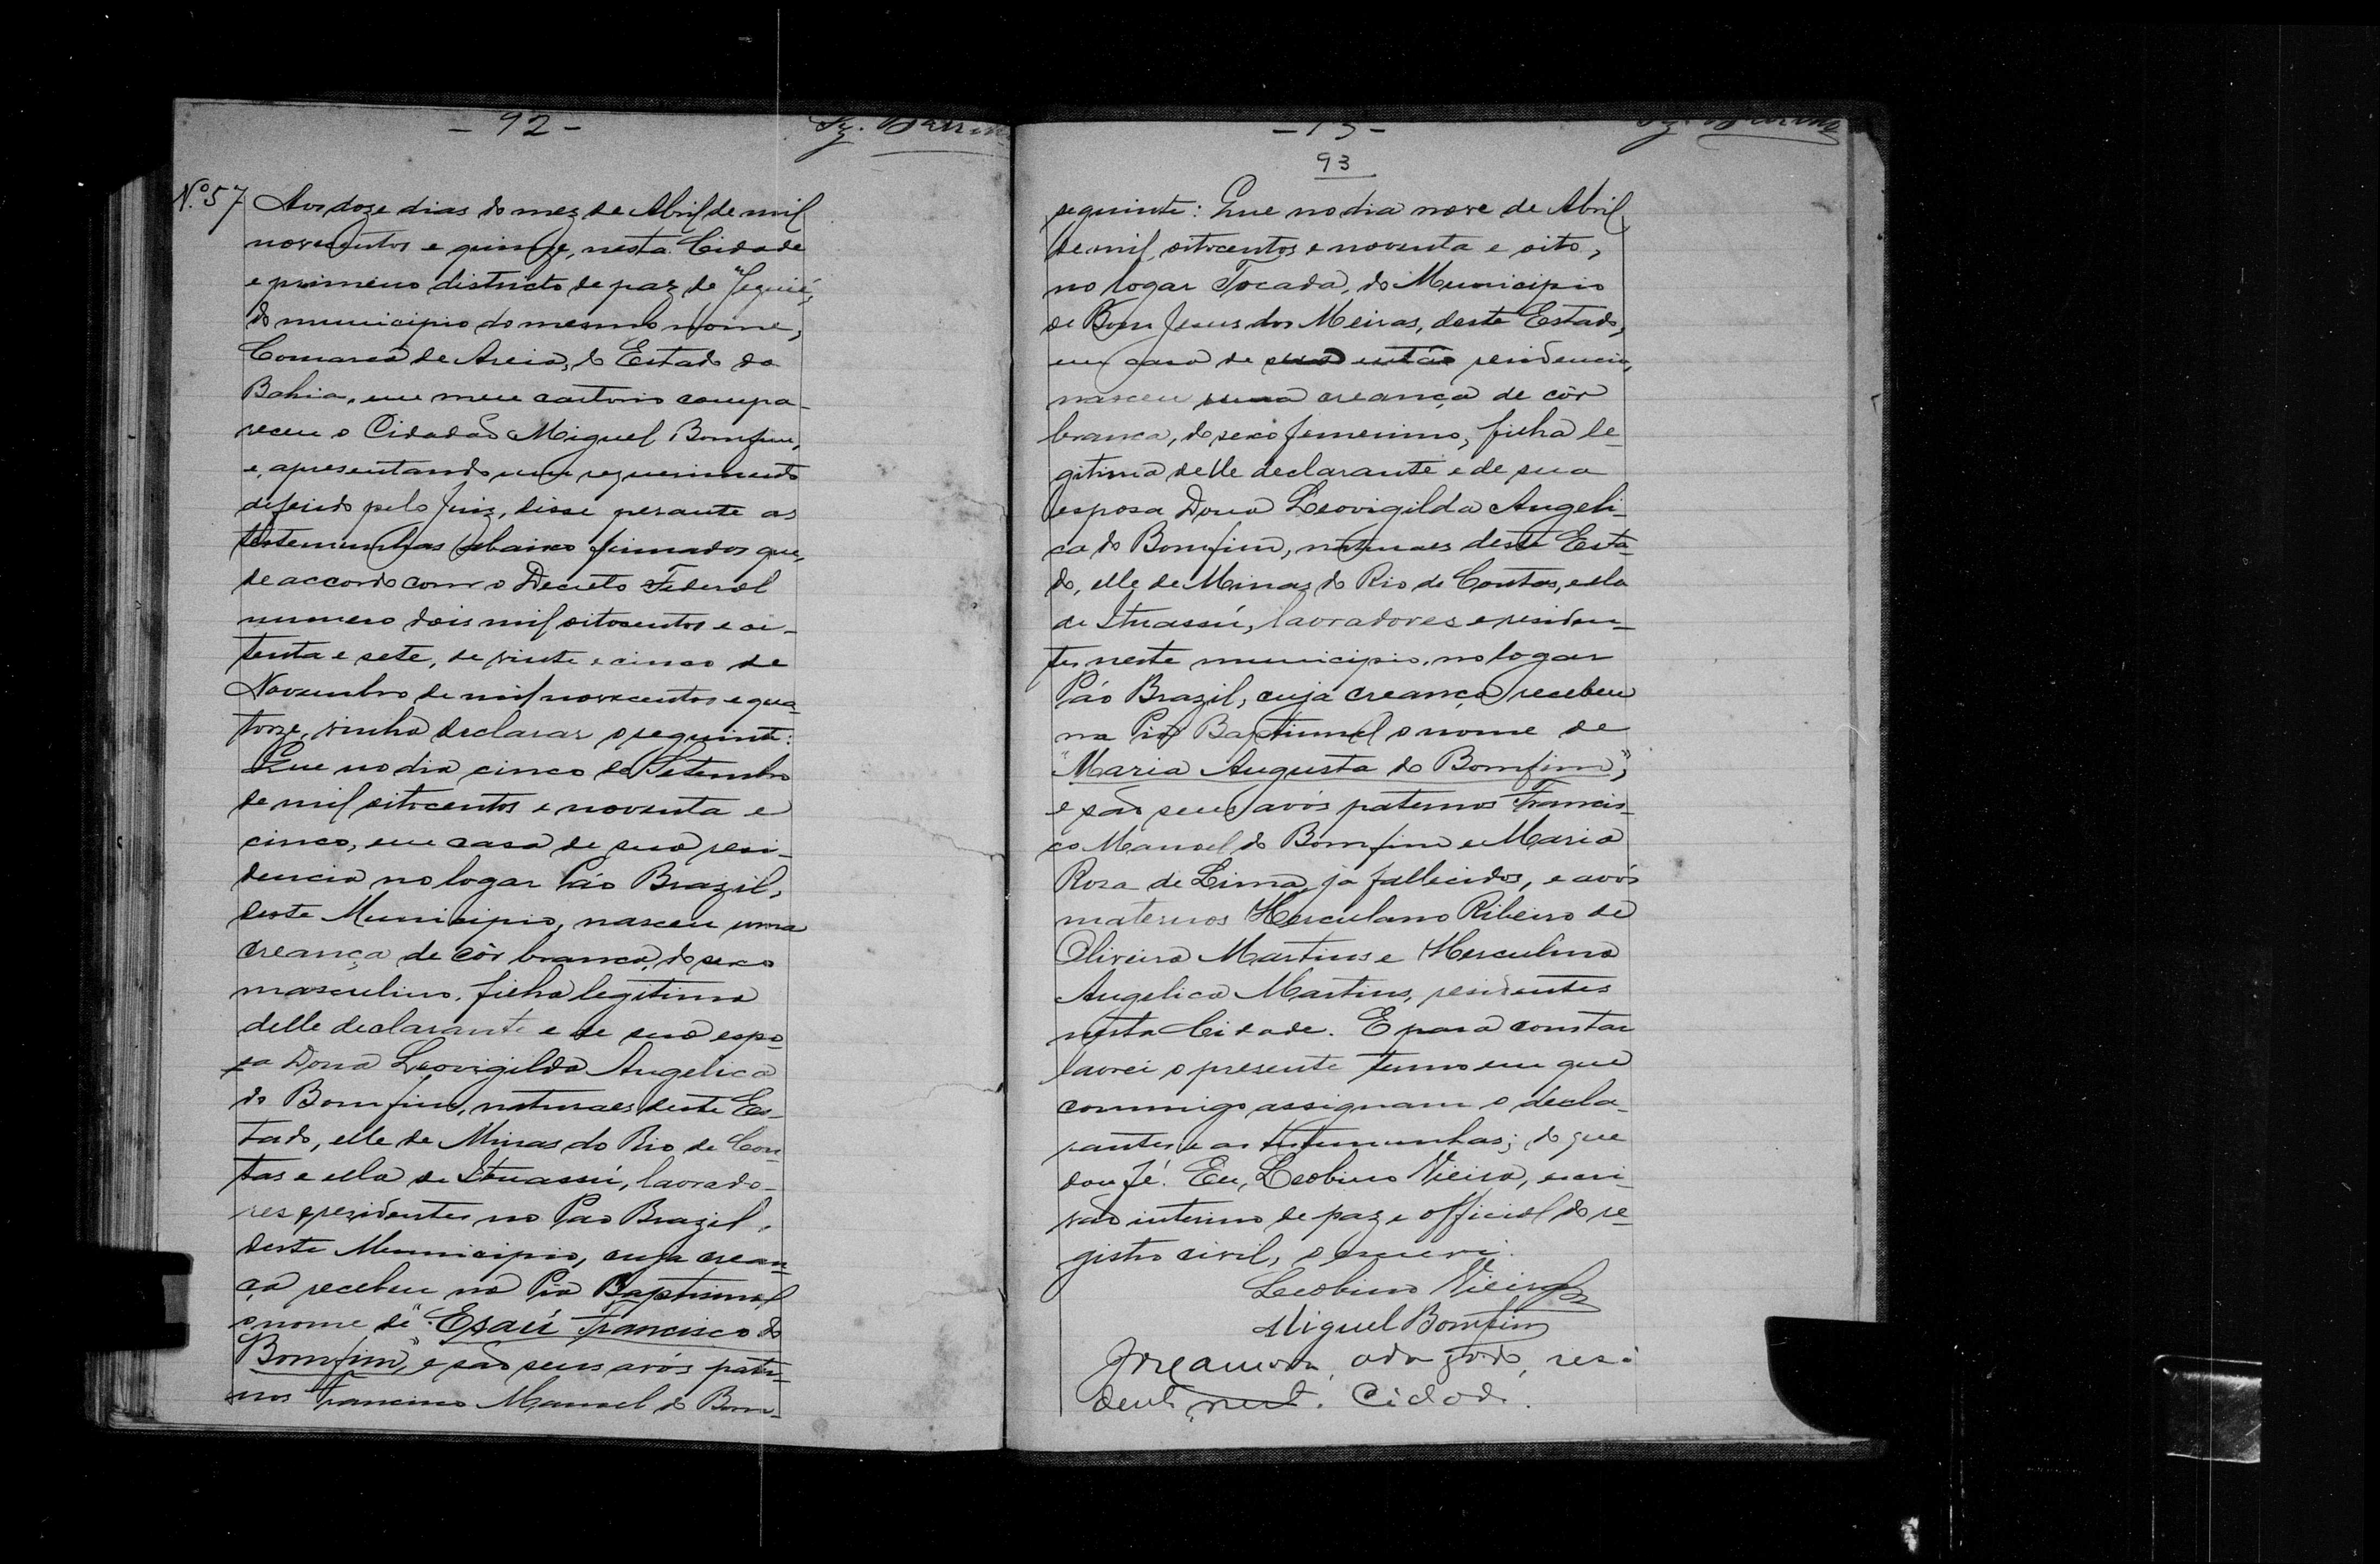 - 92 -
Nº 57 Aos doze dias do mez de Abril de mil
novecentos e quinze, nesta Cidade
e primeiro districto de paz de "Jequié,
do municipio do mesmo nome,
Comarca de Areia, do Estado da
Bahia, em meu cartorio compa-
receu o Cidadão Miguel Bomfim,
e, apresentando um requerimento
deferido pelo Juiz, disse perante as
testemunhas abaixo firmados que,
de accordo com o Decreto Federal
numero dois mil oitocentos e oi-
tenta e sete, de vinte e cinco de
Novembro de mil novecentos e qua-
torze, vinha declarar o seguinte:
Que no dia cinco de Setembro
de mil oitocentos e noventa e
cinco, em casa de sua resi-
dencia no logar Páo Brazil,
deste Municipio, nasceu uma
creança de côr branca, do sexo
masculino, filha legitima
delle declarante e de sua espo-
sa Dona Leovigilda Angelica
do Bomfim, naturaes deste Es-
tado, elle de Minas do Rio de Con-
tas e ella de Ituassú, lavrado-
res e residentes no Pao Brazil,
deste Municipio, cuja crean-
ça recebeu na Pia Baptismal
o nome de "Esaú Francisco do
Bomfim", e são seus avós pater-
nos Francisco Manoel do Bom-
93
seguinte: Que no dia nove de Abril
de mil oitocentos e noventa e oito,
no logar Tocada, do Municipio
de Bom Jesus dos Meiras, deste Estado,
em casa de sua então residencia,
nasceu uma creança de côr
branca, do sexo femenino, filha le-
gitima delle declarante e de sua
esposa Dona Leovigilda Angeli-
ca do Bomfim, naturaes deste Esta-
do, elle de Minas do Rio de Contas, e ella
de Ituassú, lavradores e residen-
tes neste municipio, no logar
Páo Brazil, cuja creança recebeu
na Pia Baptismal o nome de
"Maria Augusta do Bomfim",
e são seus avós paternos Francis-
co Manoel do Bomfim e Maria
Rosa de Lima, já fallecidos, e avós
maternos Herculano Ribeiro de
Oliveira Martins e Herculina
Angelica Martins, residentes
nesta Cidade. E para constar
lavrei o presente termo em que
commigo assignam o decla-
rante e as testemunhas; do que
dou fé. Eu, Leobino Vieira, escri-
vão interino de paz e official do re-
gistro civil, o escrevi.
Leobino Vieira
Miguel Bomfim
resi
dente nest. Cidade.